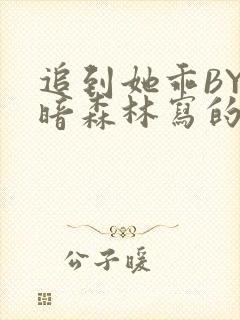 追到她乖BY
暗森林寫的
公子暖